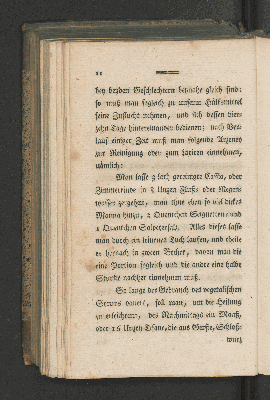 bey beyden Geschlechtern beynahe gleich sind:
so muß man sogleich zu unserm Hülfsmittel
seine Zuflucht nehmen, und sich dessen vier-
zehn Tage hintereinander bedienen; nach Ver-
lauf einiger Zeit muß man folgende Arzeney
zur Reinigung oder zum Laxiren einnehmen,
nämlich:
Man lasse 3 Loth gereinigte Cassia, oder
Zimmetrinde in 8 Unzen Fluß- oder Regen-
wasser zergehen, man thue eben so viel dickes
Manna hinzu, 2 Quentchen Sagnetten und
1 Quentchen Salpetersalz. Alles dieses lasse
man durch ein leinenes Tuch laufen, und theile
es hernach in zween Becher, davon man die
eine Portion sogleich und die andre eine halbe
Stunde nachher einnehmen muß.
So lange der Gebrauch des vegetalischen
Syrups dauert, soll man, um die Heilung
zu erleichtern, des Nachmittags ein Maaß,
oder 16 Unzen Tisane, die aus Gerste, Schloß-
wurz